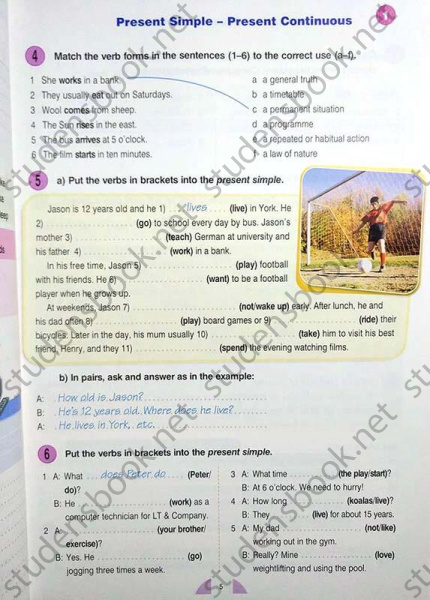 Present Simple – Present Continuous
1
4 Match the verb forms in the sentences (1–6) to the correct use (a–f).
1 She works in a bank.
2 They usually eat out on Saturdays.
3 Wool comes from sheep.
4 The Sun rises in the east.
5 The bus arrives at 5 o'clock.
6 The film starts in ten minutes.
a a general truth
b a timetable
c a permanent situation
d a programme
e a repeated or habitual action
f a law of nature
5 a) Put the verbs in brackets into the present simple.
Jason is 12 years old and he 1) ...lives.... (live) in York. He
2) .................... (go) to school every day by bus. Jason's
mother 3) .................... (teach) German at university and
his father 4) .................... (work) in a bank.
In his free time, Jason 5) .................... (play) football
with his friends. He 6) .................... (want) to be a football
player when he grows up.
At weekends, Jason 7) .................... (not/wake up) early. After lunch, he and
his dad often 8) .................... (play) board games or 9) .................... (ride) their
bicycles. Later in the day, his mum usually 10) .................... (take) him to visit his best
friend, Henry, and they 11) .................... (spend) the evening watching films.
b) In pairs, ask and answer as in the example:
A: How old is Jason?
B: He's 12 years old. Where does he live?
A: He lives in York, etc.
6 Put the verbs in brackets into the present simple.
1 A: What ...does Peter do... (Peter/
do)?
B: He .................... (work) as a
computer technician for LT & Company.
2 A: .................... (your brother/
exercise)?
B: Yes. He .................... (go)
jogging three times a week.
3 A: What time .................... (the play/start)?
B: At 6 o'clock. We need to hurry!
4 A: How long .................... (koalas/live)?
B: They .................... (live) for about 15 years.
5 A: My dad .................... (not/like)
working out in the gym.
B: Really? Mine .................... (love)
weightlifting and using the pool.
5
studensbook.net